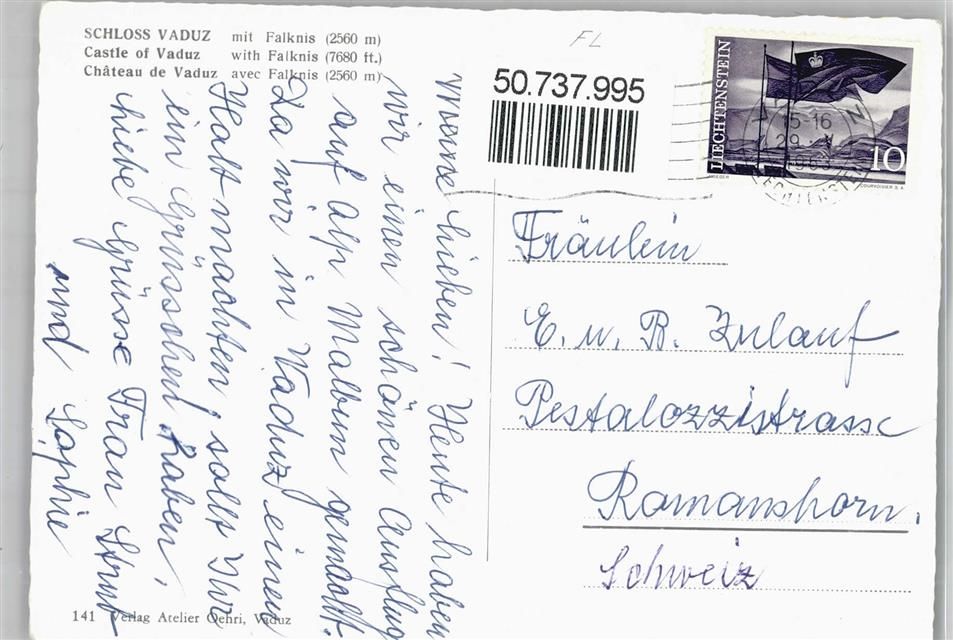 SCHLOSS VADUZ mit Falknis (2560 m)
Castle of Vaduz with Falknis (7680 ft.)
Château de Vaduz avec Falknis (2560 m)
FL
50.737.995
LIECHTENSTEIN
10
COURVOISIER S.A.
15-16
29
Meine Lieben! Heute haben
wir einen schönen Ausflug
auf Alp Malbum gemacht.
Da wir in Vaduz einen
Halt machten, sollt Ihr
ein Grüsschen haben.
Liebe Grüsse Frau Strub
und Sophie
Fräulein
E. u. B. Zulauf
Pestalozzistrasse
Romanshorn.
Schweiz
141 Verlag Atelier Oehri, Vaduz